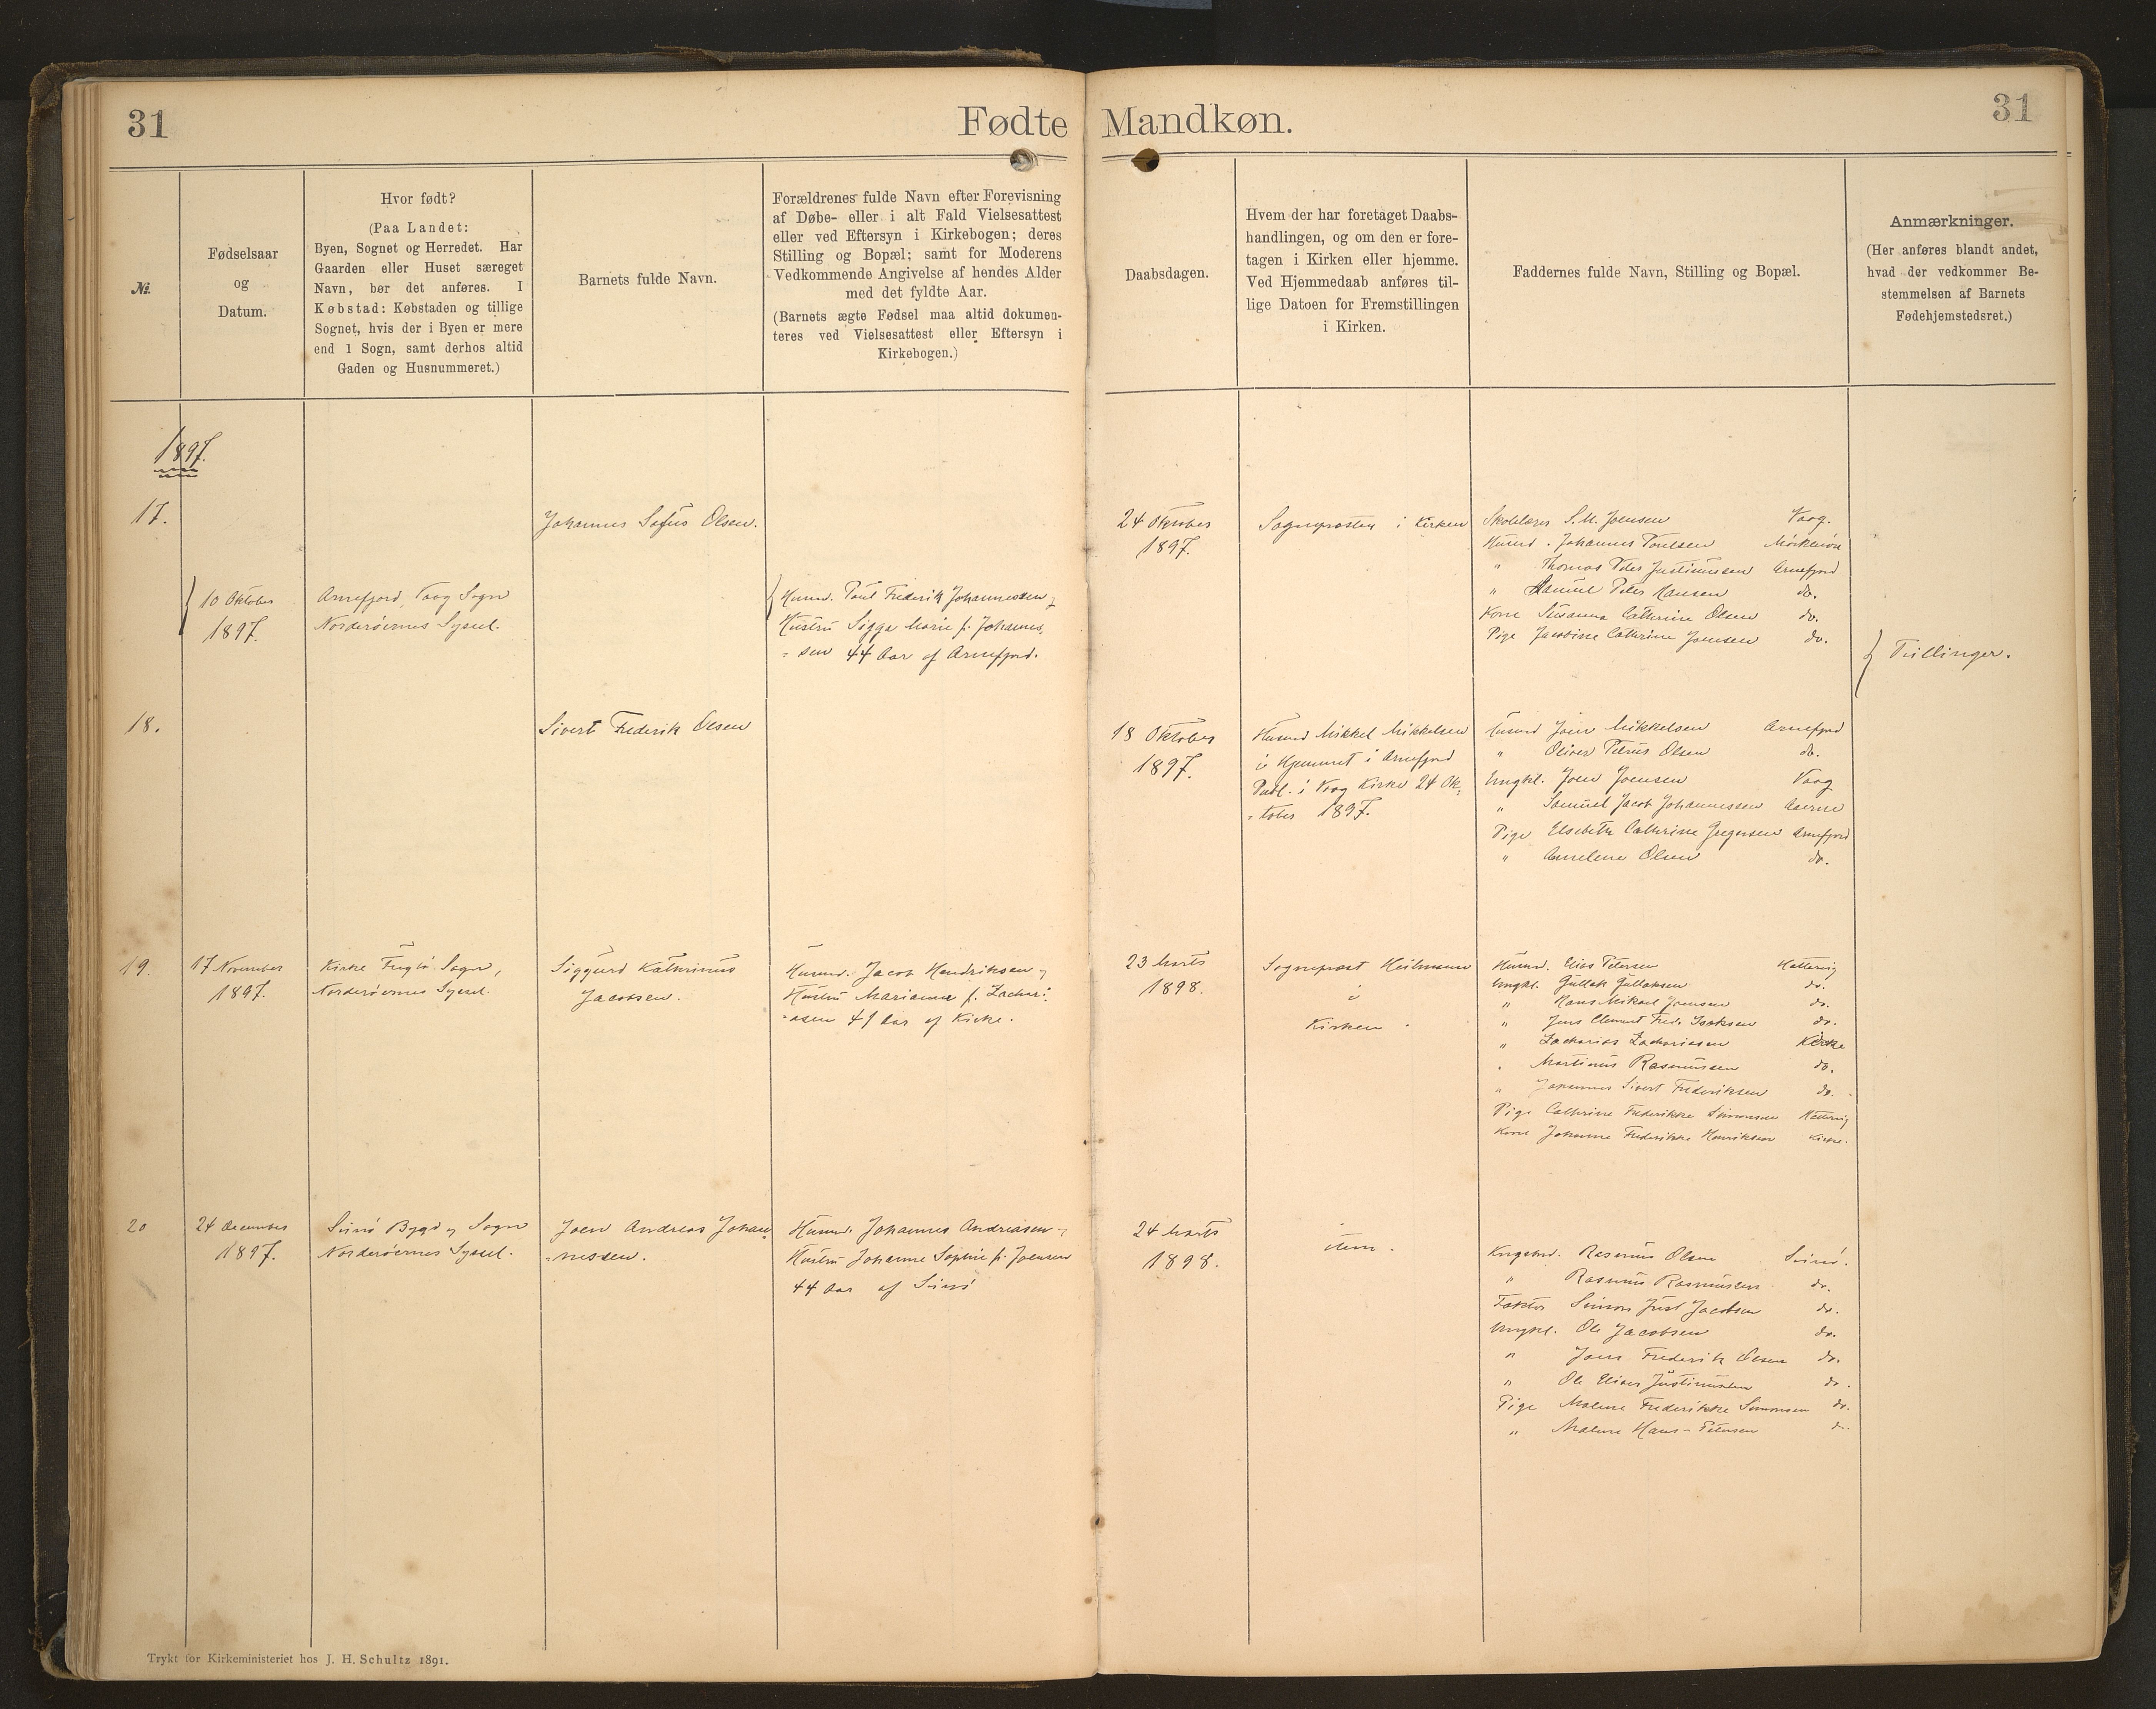 31
Fødte Mandkøn.
31
№.
Fødselsaar
og
Datum.
Hvor født?
(Paa Landet:
Byen, Sognet og Herredet. Har
Gaarden eller Huset særeget
Navn, bør det anføres. I
Købstad: Købstaden og tillige
Sognet, hvis der i Byen er mere
end 1 Sogn, samt derhos altid
Gaden og Husnummeret.)
Barnets fulde Navn.
Forældrenes fulde Navn efter Forevisning
af Døbe- eller i alt Fald Vielsesattest
eller ved Eftersyn i Kirkebogen; deres
Stilling og Bopæl; samt for Moderens
Vedkommende Angivelse af hendes Alder
med det fyldte Aar.
(Barnets ægte Fødsel maa altid dokumen-
teres ved Vielsesattest eller Eftersyn i
Kirkebogen.)
Daabsdagen.
Hvem der har foretaget Daabs-
handlingen, og om den er fore-
tagen i Kirken eller hjemme.
Ved Hjemmedaab anføres til-
lige Datoen for Fremstillingen
i Kirken.
Faddernes fulde Navn, Stilling og Bopæl.
Anmærkninger.
(Her anføres blandt andet,
hvad der vedkommer Be-
stemmelsen af Barnets
Fødehjemstedsret.)
1897.
17.
Johannes Sofus Olsen.
10 Oktober
1897.
Arnefjord, Vaag Sogn
Norderøernes Syssel.
Husmd. Poul Frederik Johannessen og
Hustru Sigga Marie f. Johannes-
sen 44 Aar af Arnefjord.
24 Oktober
1897.
Sognepresten i Kirken
Skolelærer S. M. Joensen Vaag.
Husmd. Johannes Poulsen
" Thomas Peter Justinussen Arnefjord
" Samuel Peter Hansen do.
Kone Susanna Cathrine Olsen do.
Pige Jacobine Cathrine Joensen do.
Tvillinger.
18.
Sivert Frederik Olsen
18 Oktober
1897.
Husmd Mikkel Mikkelsen
i Hjemmet i Arnefjord
Publ. i Vaag Kirke 24 Ok-
tober 1897.
Husmd Joen Mikkelsen Arnefjord
" Oliver Petrus Olsen do.
Ungkl. Joen Joensen Vaag
" Samuel Jacob Johannessen
Pige Elsebeth Cathrine Gregersen Arnefjord
" Annelene Olsen do.
19.
17 November
1897.
Kirke Fuglø Sogn,
Norderøernes Syssel.
Siggurd Kathrinus
Jacobsen.
Husmd. Jacob Hendriksen og
Hustru Marianne f. Zachari-
asen 41 Aar af Kirke.
23 Marts
1898.
Sogneprest Heilmann
i
Kirken
Husmd. Elias Petersen Hattervig
Ungkl. Gullak Gullaksen do.
" Hans Mikael Joensen do.
" Jens Clement Fred. Isaksen do.
" Zacharias Zachariasen Kirke
" Martinus Rasmussen do.
" Johannes Sivert Frederiksen do.
Pige Cathrine Frederikke Simonsen Hattervig
Kone Johanne Frederikke Henriksen Kirke.
20
24 December
1897.
Svinø Bygd og Sogn
Norderøernes Syssel.
Joen Andreas Johan-
nessen.
Husmd. Johannes Andreasen og
Hustru Johanne Sophie f. Joensen
44 Aar af Svinø
24 Marts
1898.
item.
Kngsbnd. Rasmus Olsen Svinø.
" Rasmus Rasmussen do.
Faktor Simon Just Jacobsen do.
Ungkl. Ole Jacobsen do.
" Joen Frederik Olsen do.
" Ole Elias Justinussen do.
Pige Malene Frederikke Simonsen do.
" Malene Hans-Petersen do.
Trykt for Kirkeministeriet hos J. H. Schultz 1891.